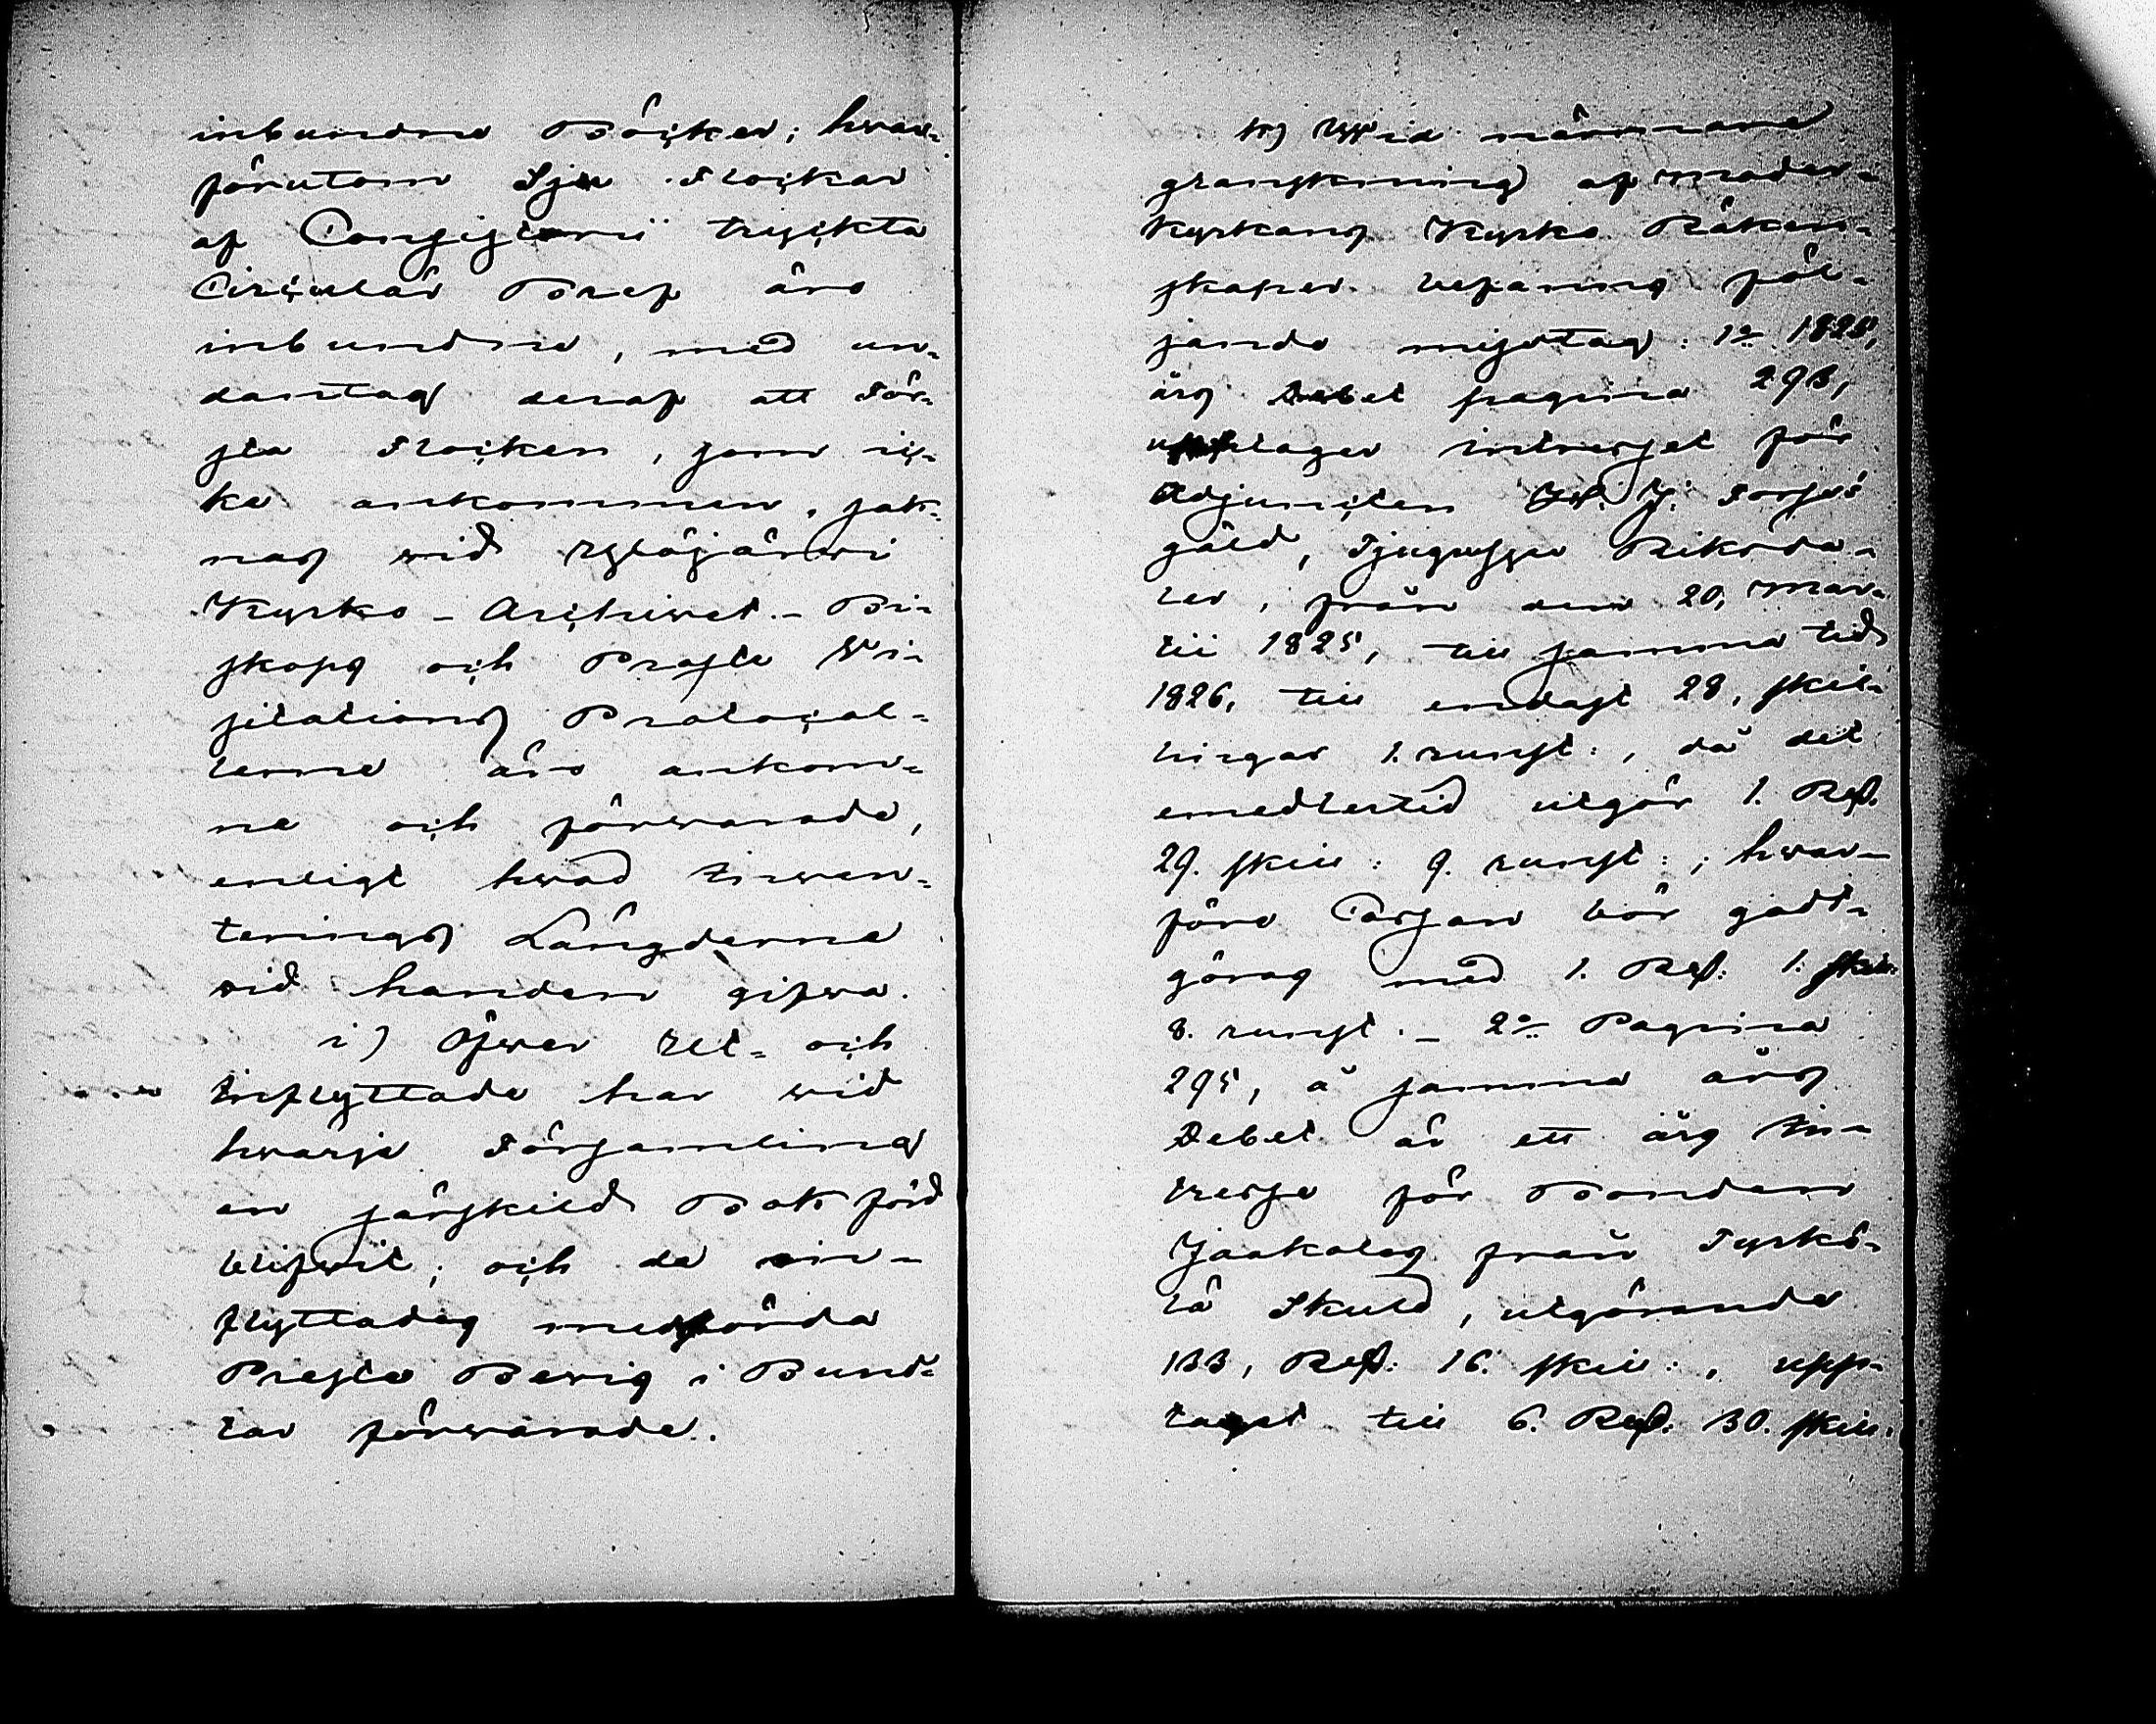 inbundne Böcker; hvar-
förutom Sju Flockar
af Consistorii tryckta
Circulär Bref äro
inbundne, med un-
dantag deraf att För-
sta Flocken, som ic-
ke ankommen, sak-
nas vid Ylöjärvi
Kyrko-Archivet. - Bi-
skops och Probste Vi-
sitations Protocol-
lerne äro ankom-
ne och förvarade,
enligt hvad Inven-
terings Längderne
vid handen gifva.
i) Öfver Ut- och
Inflyttade har vid
hvarje Församling
en särskild Bok förd
blifvit; och de in-
flyttades medförda
Preste Bevis i Bund-
tar förvarade.
k) Vid närmare
granskning af moder-
kyrkans Kyrko Räken-
skaper befanns föl-
jande misstag: 1o 1825,
års Debet pagina 293,
upptages intresset för
Adjuncten J. Forsius
gäld, Tjugusju Riksda-
ler, från den 20, Mar-
tii 1825, till samma tid
1826, till endast 28, skil-
lingar 1. runst:, då det
emedlertid utgör 1. Rd.
29. skill: 9. runst:; hvar-
före Cassan bör godt-
göras med 1. Rd: 1. skill:
8. runst. - 2o Pagina
295, å samma års
Debet är ett års In-
tresse för Bonden
Jaakolas från Tyrkö-
lä Skuld, utgörande
133, Rd: 16. skill:, upp-
taget till 6. Rd: 30. skill: